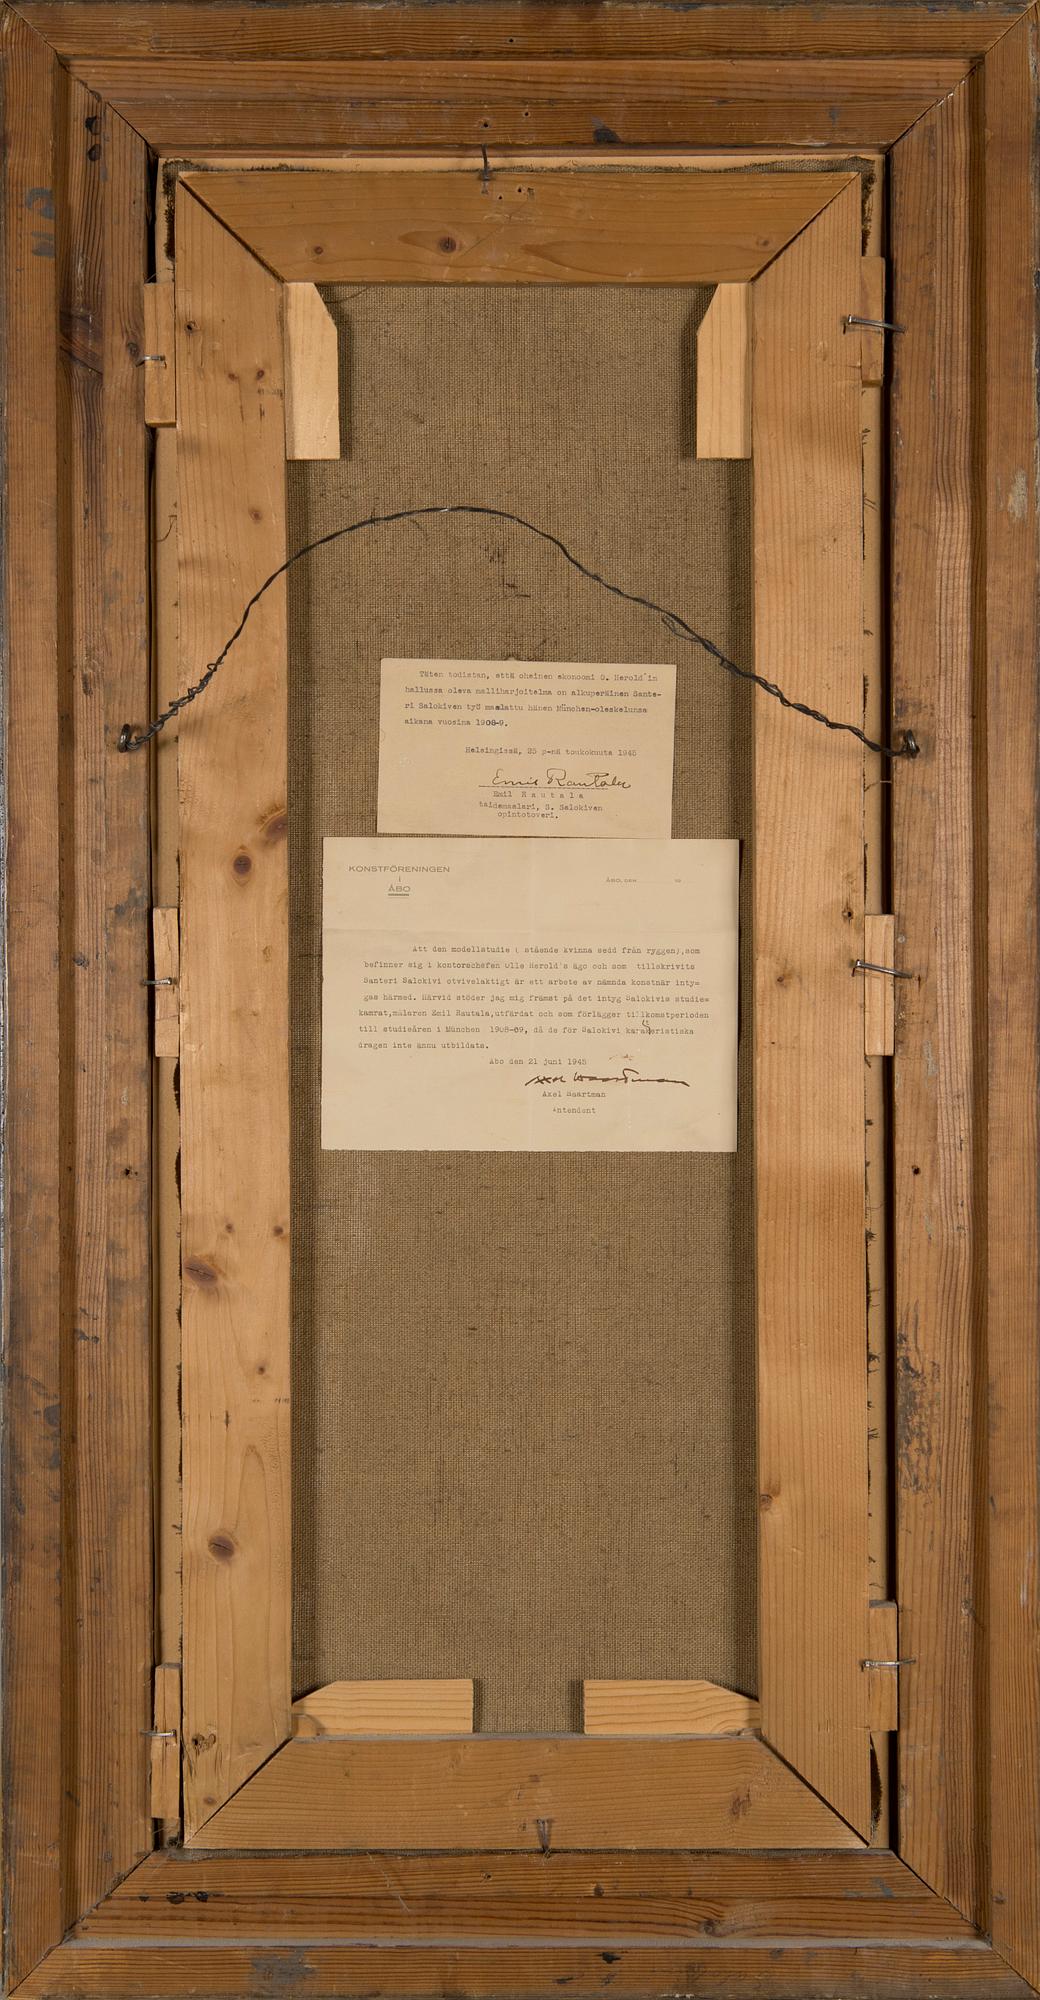 Täten todistan, että oheinen ekonoomi O. Herold'in
hallussa oleva malliharjoitelma on alkuperäinen Sante-
ri Salokiven työ maalattu hänen München-oleskelunsa
aikana vuosina 1908-9.
Helsingissä, 25 p-nä toukokuuta 1945
Emil Rautala
Emil Rautala
taidemaalari, S. Salokiven
opintotoveri.
KONSTFÖRENINGEN
I
ÅBO
ÅBO, DEN 19
Att den modellstudie ( stående kvinna sedd från ryggen),som
befinner sig i kontorschefen Olle Herold's ägo och som tillskrivits
Santeri Salokivi otvivelaktigt är ett arbete av nämnda konstnär inty-
gas härmed. Härvid stöder jag mig främst på det intyg Salokivis studie=
kamrat,målaren Emil Rautala,utfärdat och som förlägger tillkomstperioden
till studieåren i München 1908-09, då de för Salokivi karakeristiska
dragen inte ännu utbildats.
Åbo den 21 juni 1945
Axel Haartman
Axel Haartman
Intendent